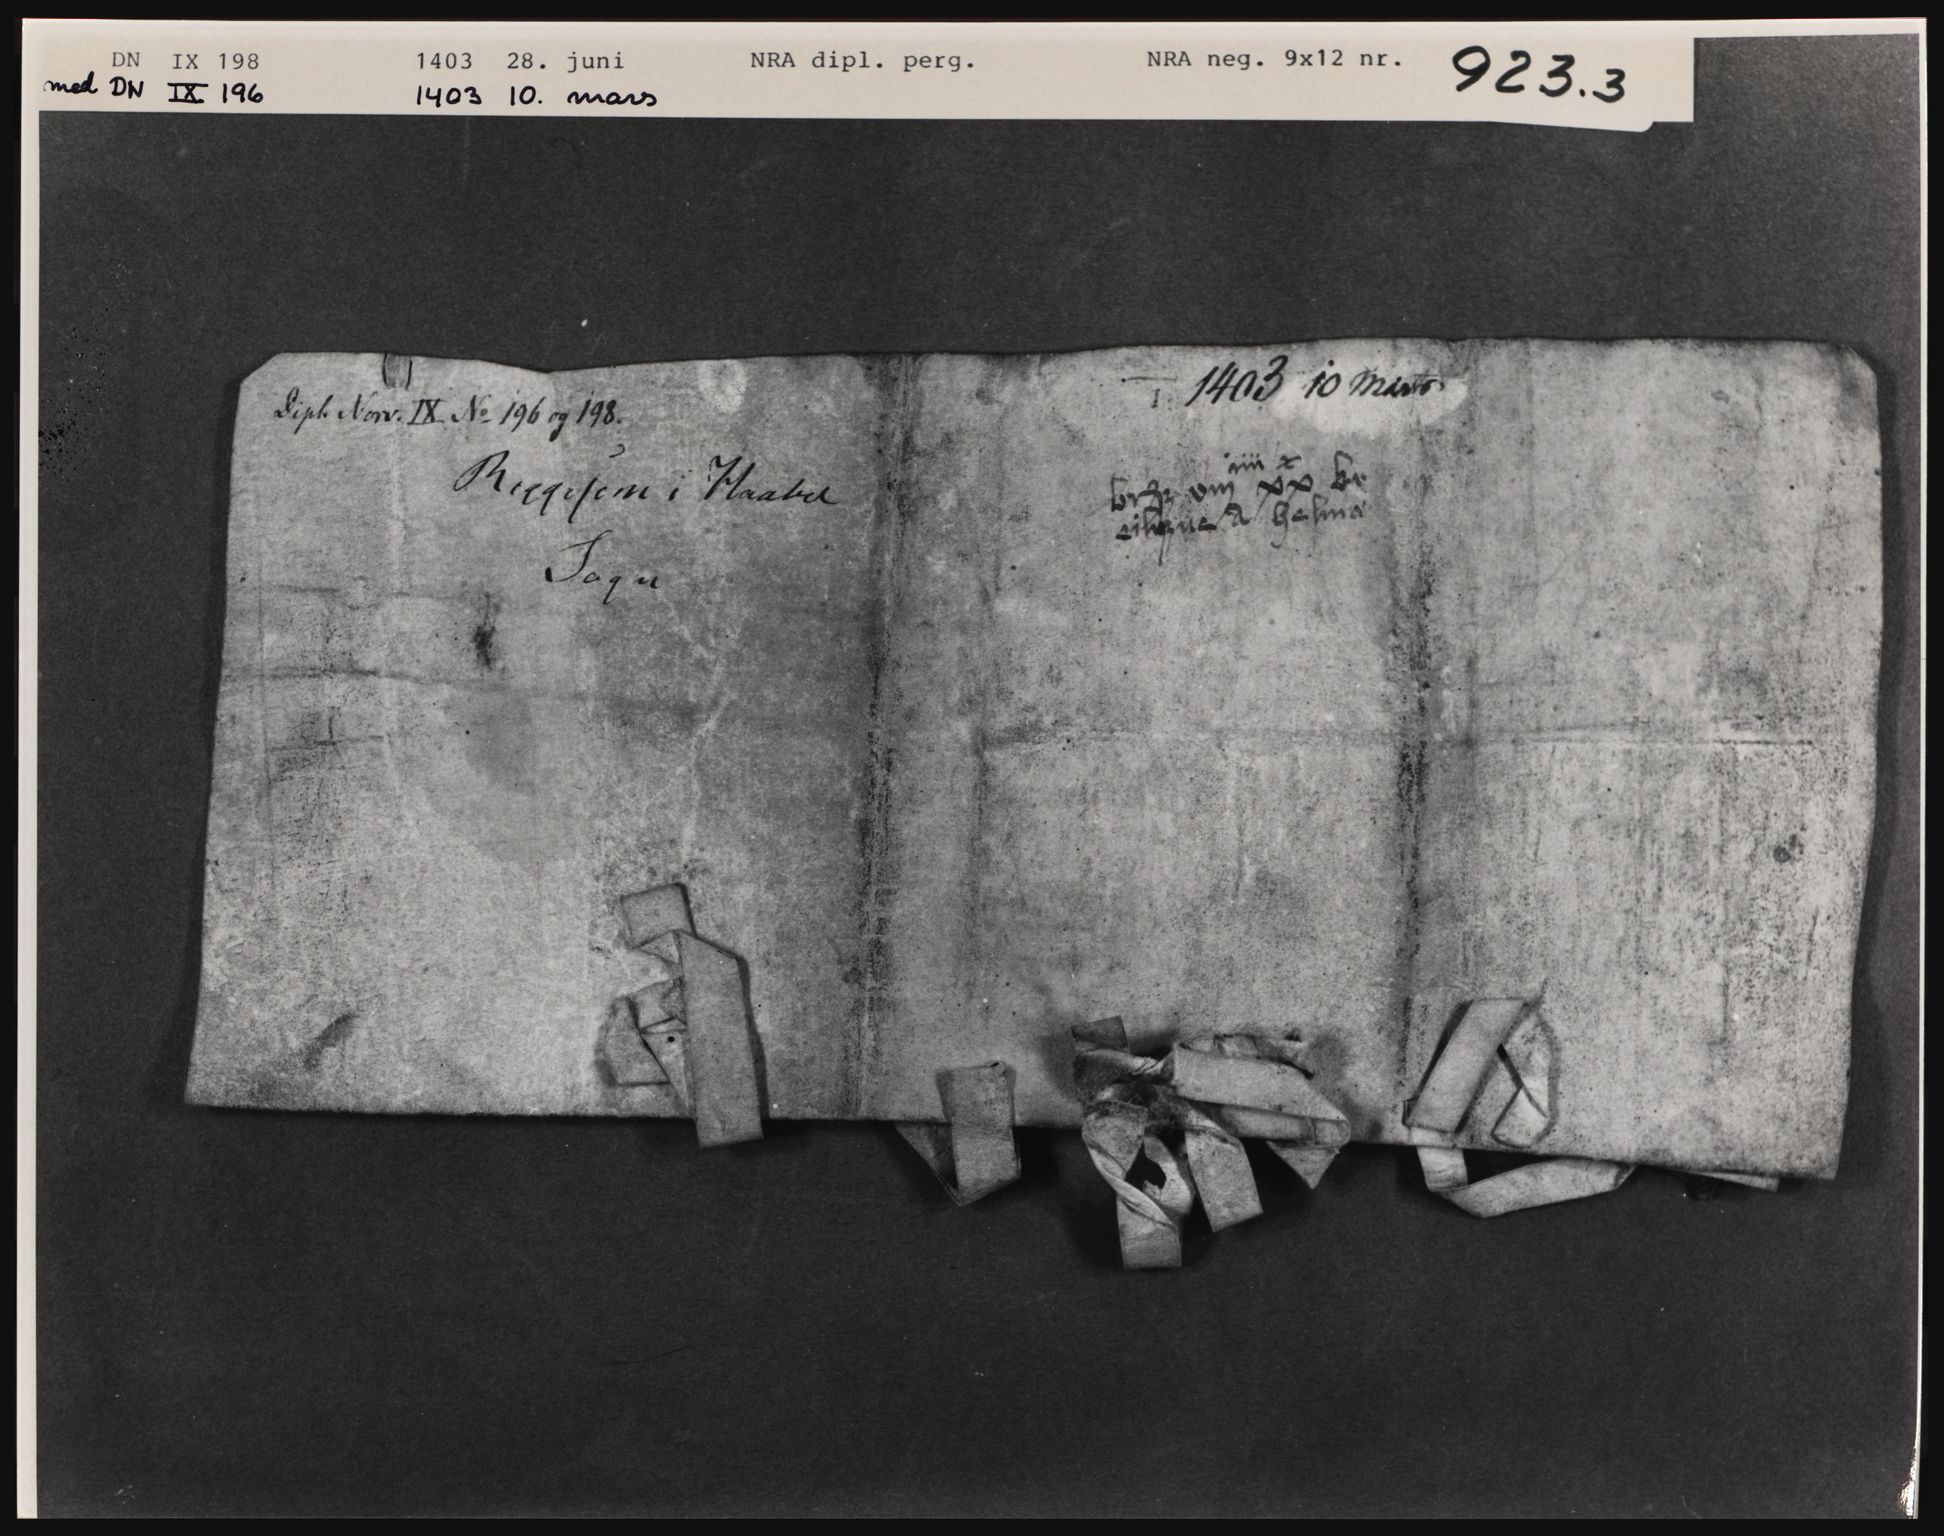 DN IX 198 1403 28. juni NRA dipl. perg. NRA neg. 9x12 nr. 923.3
med DN IX 196 1403 10. mars
1403 10 Marts
Dipl. Norv. IX No 196 og 198.
i Haabøl
Sogn